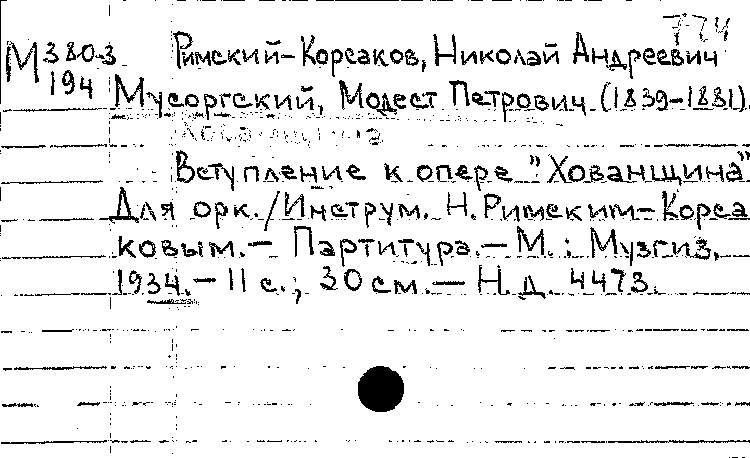 774
М 380-3 Римский-Корсаков, Николай Андреевич
194 Мусоргский, Модест Петрович (1839-1881)
Хованщина
Вступление к опере "Хованщина"
Для орк./Инструм. Н. Римским-Корса
ковым.— Партитура.— М.: Музгиз,
1934.— 11 с.; 30 см.— Н. д. 4473.